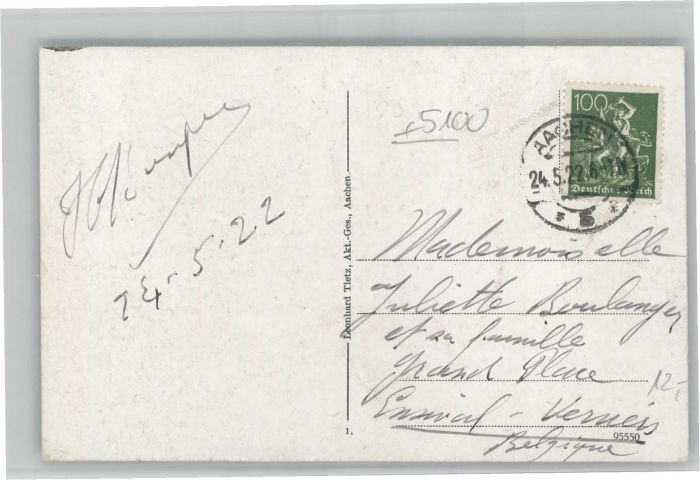 24-5-22
Leonhard Tietz, Akt.-Ges., Aachen.
5100
100
Deutsches Reich
AACHEN
24.5.22.6-7 N
Mademoiselle
Juliette Boulanger
et sa famille
Grand Place
Ensival - Verviers
Belgique
12.-
1.
95550